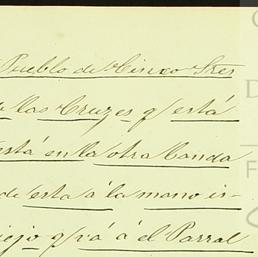 Pueblo de Cinco Sres
de las Cruzes q/ está
está en la otra banda
de esta á la mano is-
iejo q/ vá á el Parral